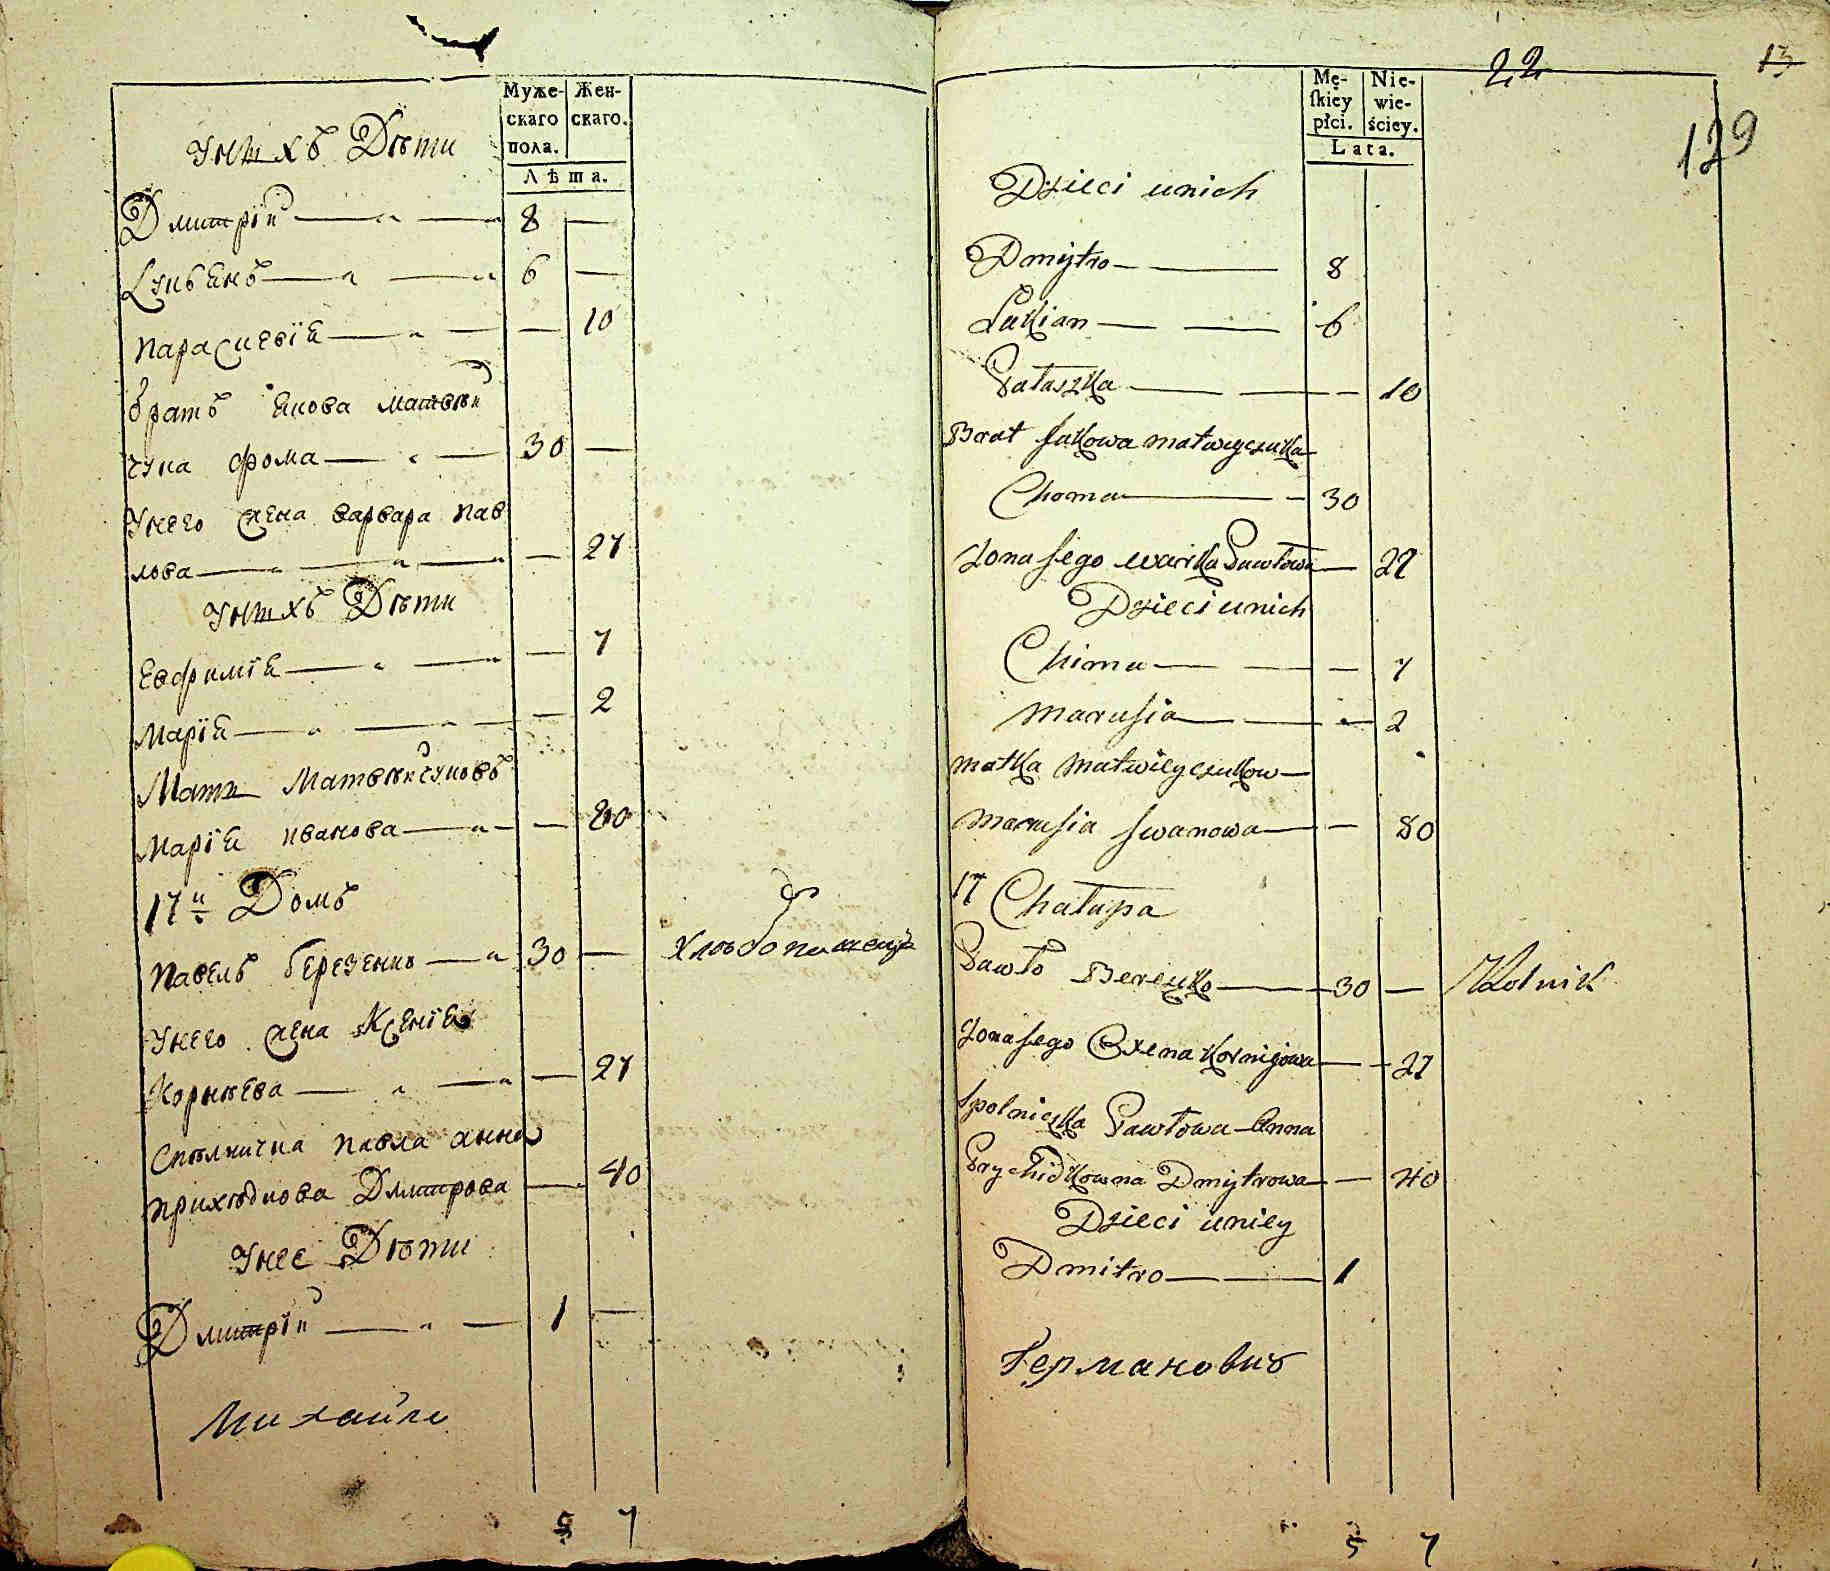 Муже-
скаго
пола.
Жен-
скаго.
Лѣта.
Унихъ Дѣти
Дмитрій 8 —
Лукъянъ 6 —
Парасκевія — 10
братъ Якова Матвѣй
чука Фома 30 —
Унего жена Варвара Пав
лова — 27
Унихъ Дѣти
Евфимія — 7
Марія — 2
Мати Матвѣйчуковъ
Марія иванова — 80
17й Домъ
Павелъ березенко 30 — хлѣбопашецъ
Унего жена Ксенія
Корнѣева — 27
Спѣлничка Павла Анна
Прихѣдкова Дмитрова — 40
Унее Дѣти
Дмитрій 1 —
Михайло
5 7
22
13
129
Mę-
skiey
płci.
Nie-
wie-
ściey.
Lata.
Dzieci unich
Dmÿtro 8
Łukian 6
Paraszka — 10
Brat Jakowa Matwiyczuka
Choma — 30
Zona jego Warka Pawłowa — 27
Dzieci unich
Chima — 7
Marusia — 2
Matka Matwieyczukow —
Marusia Jwanowa — 80
17 Chałupa
Pawło Berezko 30 — Rolnik
Zona jego Oxena Korniejowa — 27
Spolniczka Pawłowa Anna
Prychidkowna Dmÿtrowa — 40
Dzieci uniey
Dmitro 1
Германовичъ
5 7